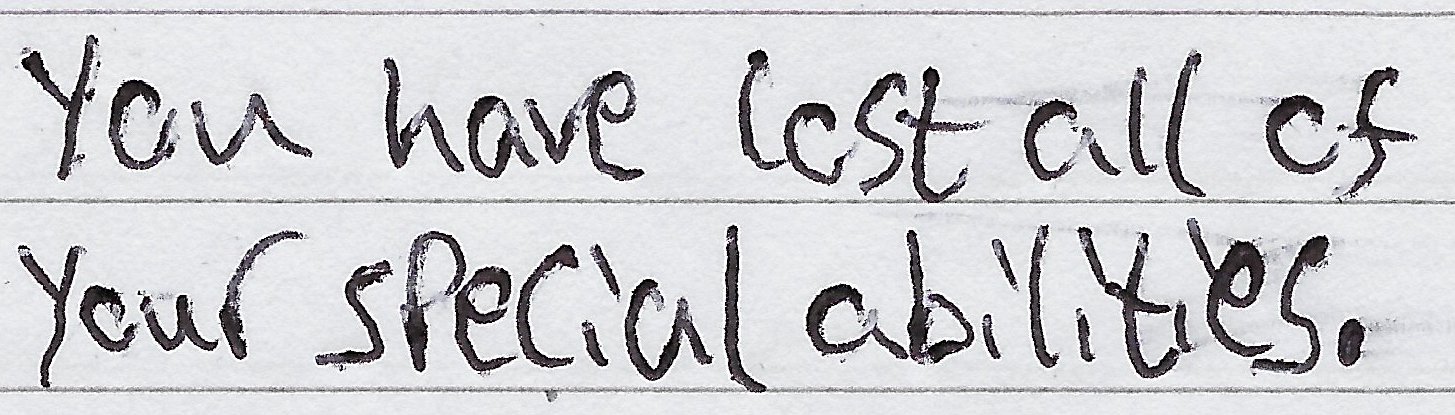 You have lost all of
your special abilities.